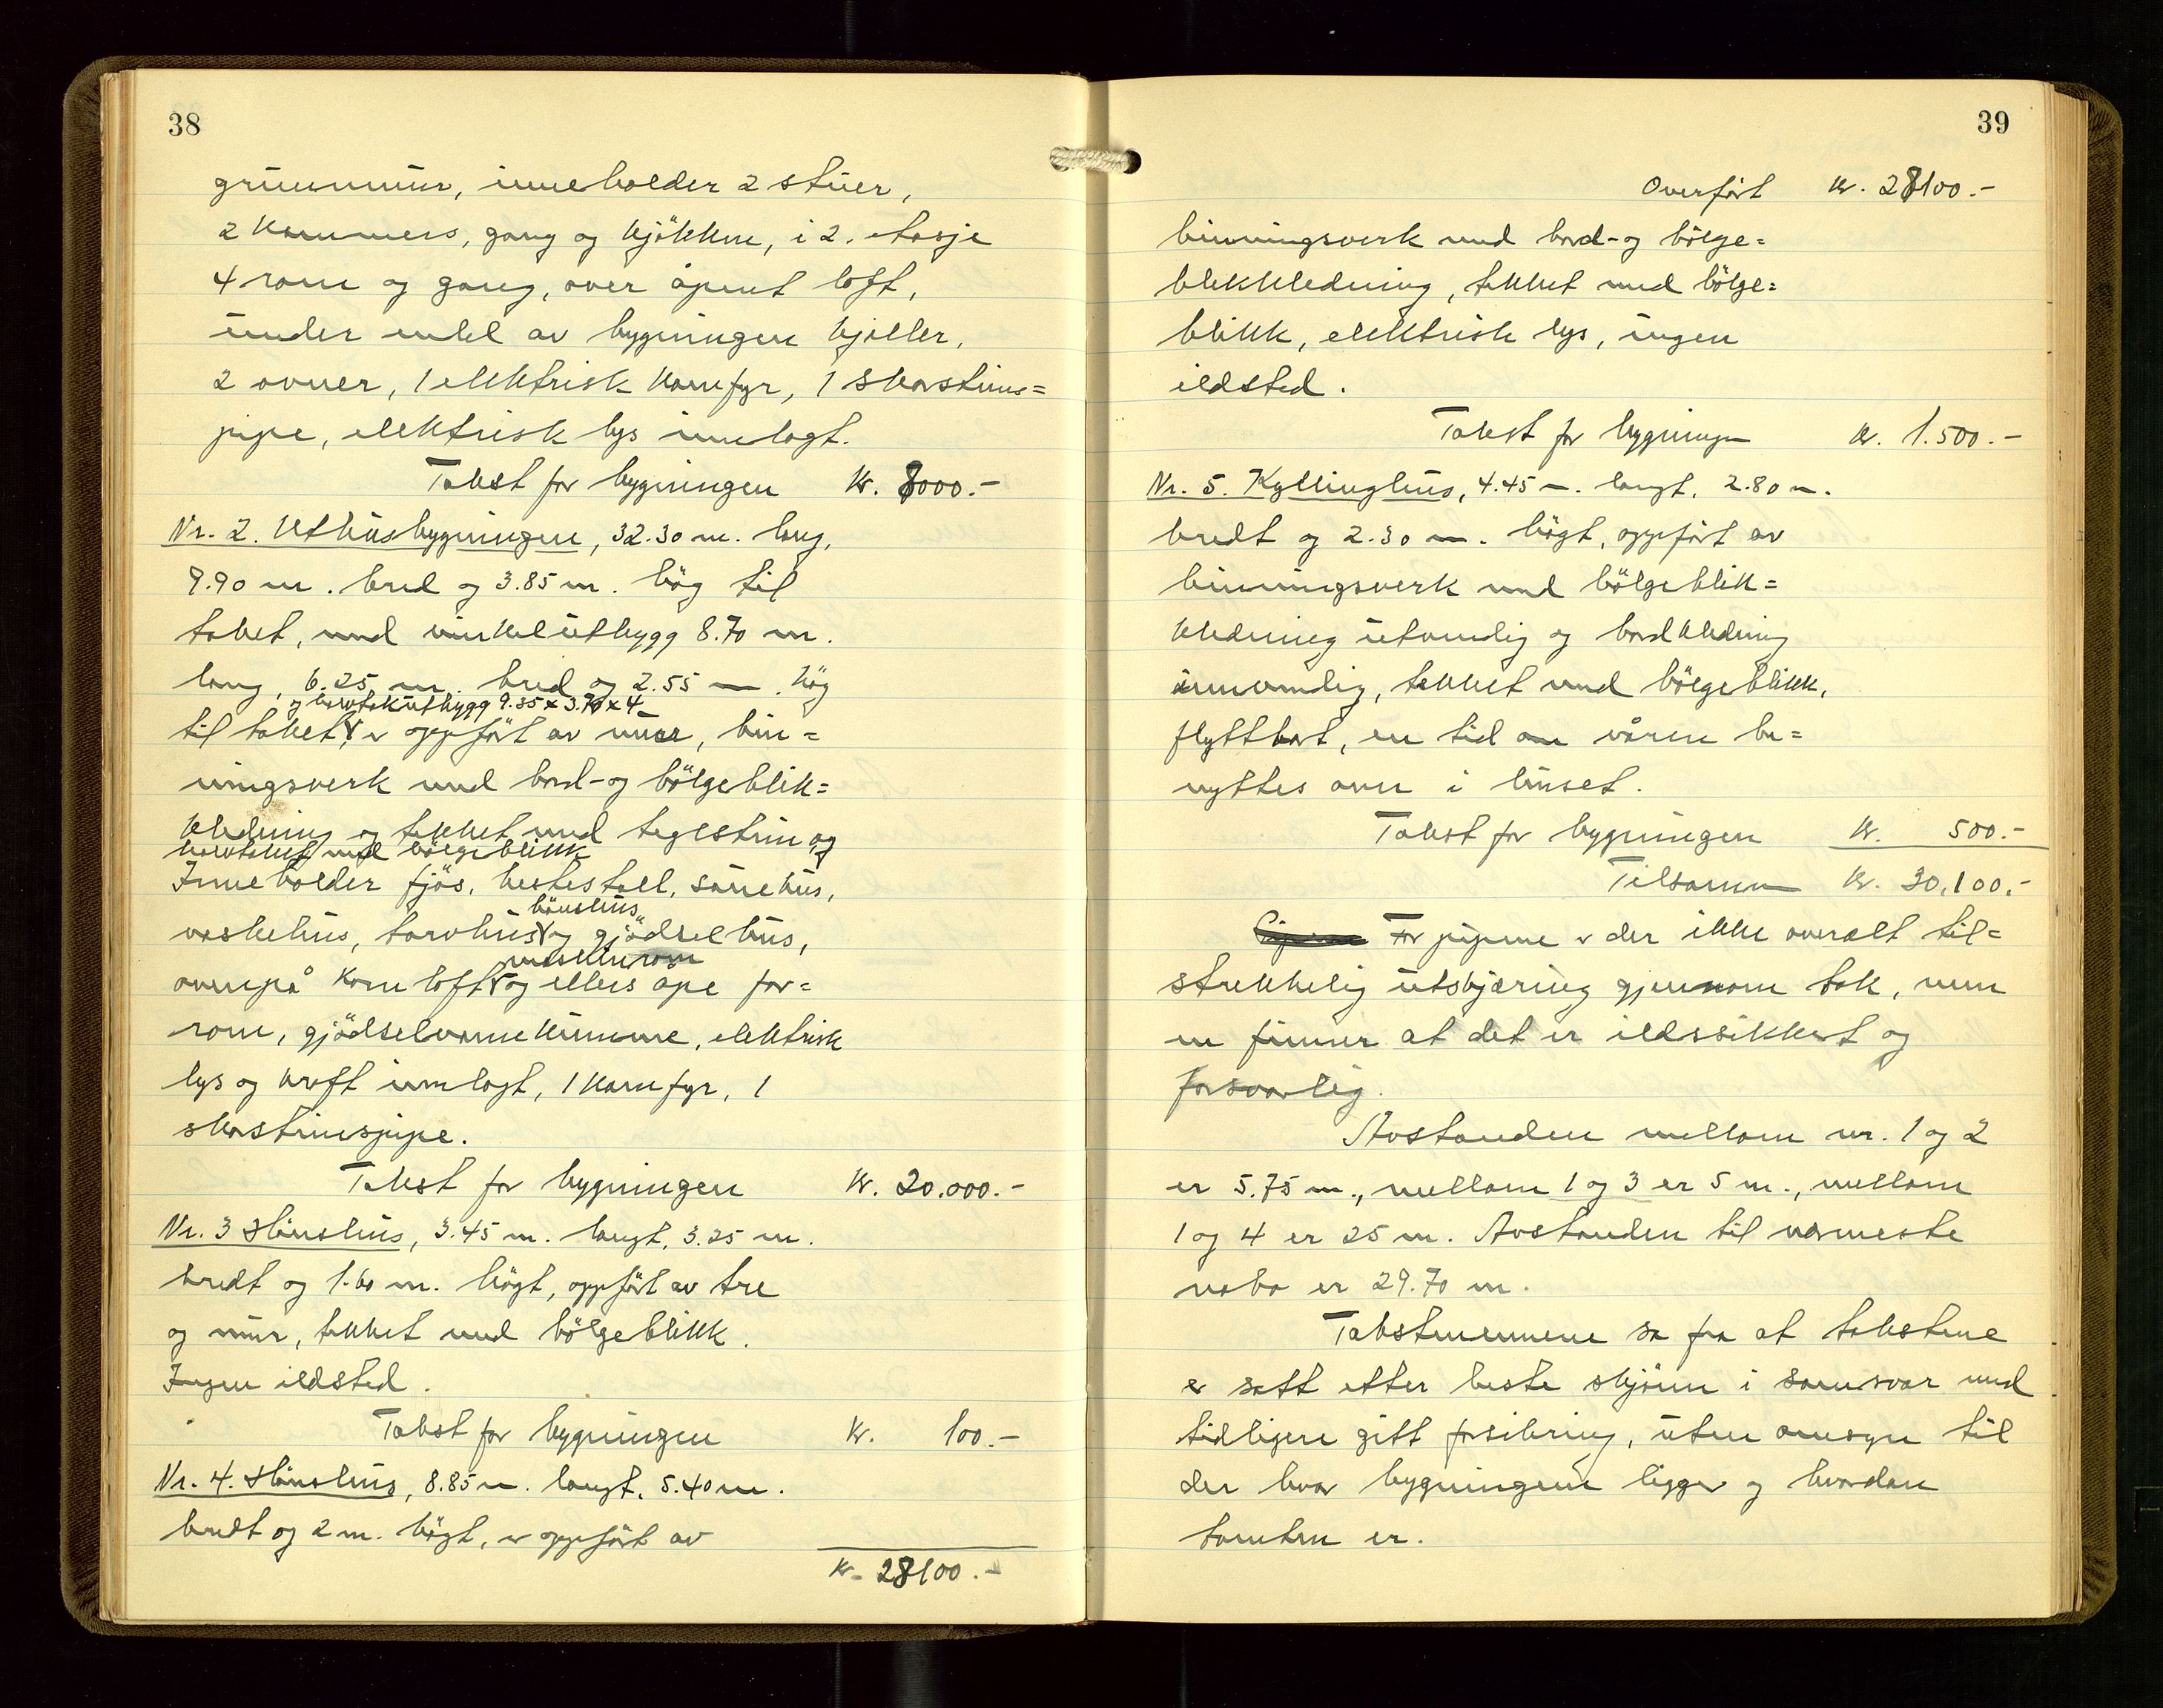 38
grunnmur, inneholder 2 stuer,
2 kammers, gang og kjökken, i 2. etasje
4 rom og gang, over åpent loft,
under endel av bygningen kjeller,
2 ovner, 1 elektrisk komfyr, 1 skorstens=
pipe, elektrisk lys innlagt.
Takst for bygningen Kr. 8000.-
Nr. 2. Uthusbygningen, 32.30 m. lang,
9.90 m. bred og 3.85 m. hög til
taket, med vinkelutbygg 8.70 m.
lang, 6.25 m. bred og 2.55 m. hög
og halvtakutbygg 9.35 x 3.70 x 4
til taket, er oppfört av mur, bin=
ningsverk med bord- og bölgeblik=
kledning og tekket med teglsten og
halvtaket med bölgeblikk
Inneholder fjös, hestestall, sauehus,
hönshus
vaskehus, torvhus og gjödselhus,
maskinrom
ovenpå kornloft og ellers åpe for=
rom, gjödselvannskumme, elektrisk
lys og kraft innlagt, 1 komfyr, 1
skorstenspipe.
Takst for bygningen Kr. 20.000.-
Nr. 3 Hönshus, 3.45 m. langt, 3.25 m.
bredt og 1.60 m. högt, oppfört av tre
og mur, tekket med bölgeblikk.
Ingen ildsted.
Takst for bygningen Kr. 100.-
Nr. 4. Hönshus, 8.85 m. langt, 5.40 m.
bredt og 2 m. högt, er oppfört av
Kr. 28100.-
39
Overfört Kr. 28100.-
binningsverk med bord- og bölge=
blekkledning, tekket med bölge=
blikk, elektrisk lys, ingen
ildsted.
Takst for bygningen Kr. 1.500.-
Nr. 5. Kyllinghus, 4.45 m. langt, 2.80 m.
bredt og 2.30 m. högt, oppfört av
binningsverk med bölgeblik=
kledning utvendig og bordkledning
innvendig, tekket med bölgeblikk,
flyttbart, en tid om våren be=
nyttes ovn i huset.
Takst for bygningen Kr. 500.-
Tilsammen Kr. 30,100.-
For pipene er der ikke overalt til=
strekkelig utskjæring gjennom tak, men
en finner at det er ildssikkert og
forsvarlig.
Avstanden mellom nr. 1 og 2
er 5.75 m., mellom 1 og 3 er 5 m., mellom
1 og 4 er 25 m. Avstanden til nærmeste
nabo er 29.70 m.
Takstmennene sa fra at takstene
er satt etter beste skjönn i samsvar med
tidligere gitt forsikring, uten omsyn til
der hvor bygningene ligger og hvordan
tomten er.